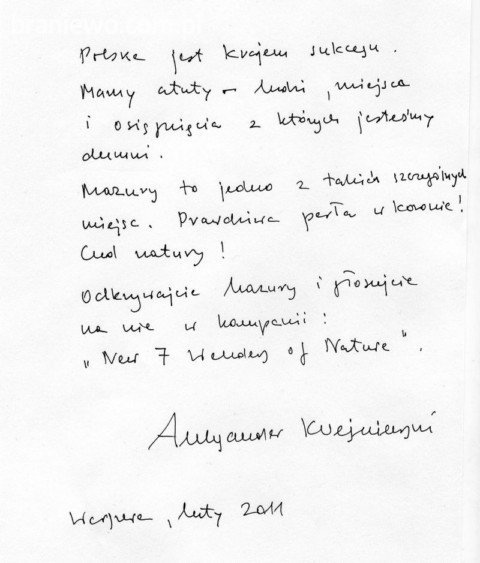 braniewo
Polska jest krajem sukcesu.
Mamy atuty – ludzi, miejsca
i osiągnięcia z których jesteśmy
dumni.
Mazury to jedno z takich szczególnych
miejsc. Prawdziwa perła w koronie!
Cud natury!
Odkrywajcie Mazury i głosujcie
na nie w kampanii:
„New 7 Wonders of Nature".
Aleksander Kwaśniewski
Warszawa, luty 2011